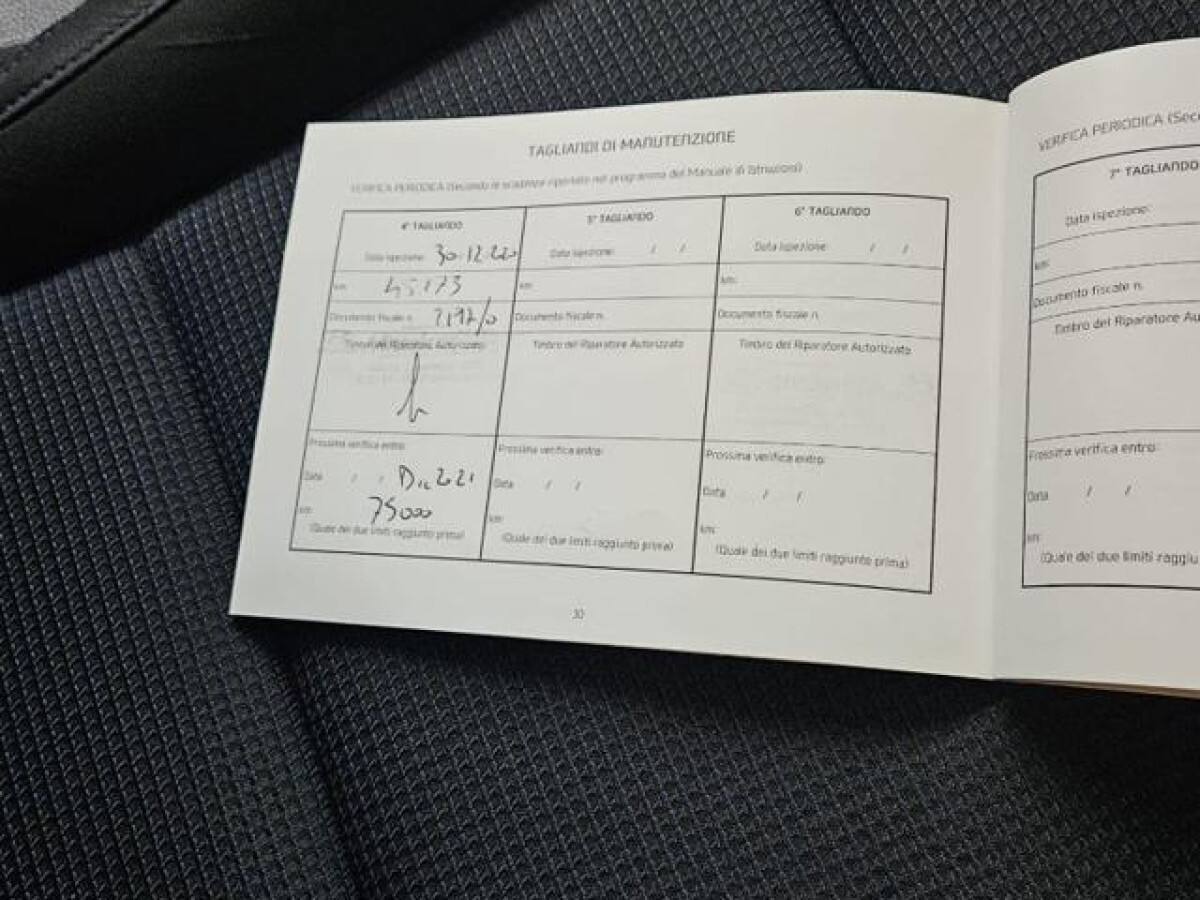 TAGLIANDI DI MANUTENZIONE
VERIFICA PERIODICA (Secondo le scadenze riportate nel programma del Manuale di Istruzioni)
4° TAGLIANDO
Data ispezione: 30.12.220
km:
Documento fiscale n.
Timbro del Riparatore Autorizzato
Prossima verifica entro:
Data / / Dic 221
km: 75000
(Quale dei due limiti raggiunto prima)
5° TAGLIANDO
Data ispezione: / /
km:
Documento fiscale n.
Timbro del Riparatore Autorizzato
Prossima verifica entro:
Data / /
km:
(Quale dei due limiti raggiunto prima)
6° TAGLIANDO
Data ispezione: / /
km:
Documento fiscale n.
Timbro del Riparatore Autorizzato
Prossima verifica entro:
Data / /
km:
(Quale dei due limiti raggiunto prima)
30
VERIFICA PERIODICA (Seco
7° TAGLIANDO
Data ispezione:
km:
Documento fiscale n.
Timbro del Riparatore Au
Prossima verifica entro:
Data / /
km:
(Quale dei due limiti raggiu